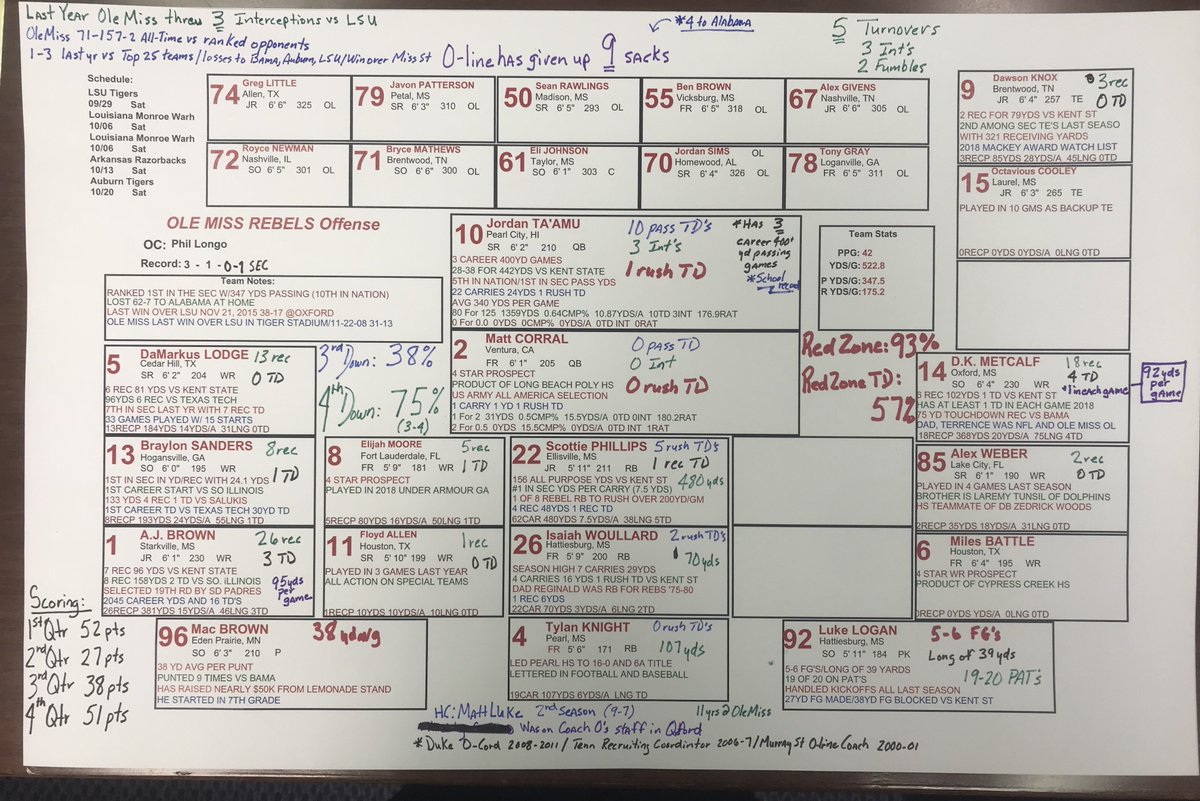 Last Year Ole Miss threw 3 Interceptions vs LSU
Ole Miss 71-157-2 All-Time vs ranked opponents
1-3 last yr vs Top 25 teams/losses to Bama, Auburn, LSU/Win over Miss St
O-line has given up 9 sacks
*4 to Alabama
5 Turnovers
3 Int's
2 Fumbles
Schedule:
LSU Tigers
09/29 Sat
Louisiana Monroe Warh
10/06 Sat
Louisiana Monroe Warh
10/06 Sat
Arkansas Razorbacks
10/13 Sat
Auburn Tigers
10/20 Sat
74 Greg LITTLE
Allen, TX
JR 6' 6" 325 OL
79 Javon PATTERSON
Petal, MS
SR 6' 3" 310 OL
50 Sean RAWLINGS
Madison, MS
SR 6' 5" 293 OL
55 Ben BROWN
Vicksburg, MS
FR 6' 5" 318 OL
67 Alex GIVENS
Nashville, TN
JR 6' 6" 305 OL
72 Royce NEWMAN
Nashville, IL
SO 6' 5" 301 OL
71 Bryce MATHEWS
Brentwood, TN
SO 6' 6" 300 OL
61 Eli JOHNSON
Taylor, MS
SO 6' 1" 303 C
70 Jordan SIMS OL
Homewood, AL
SR 6' 4" 326 OL
78 Tony GRAY
Loganville, GA
FR 6' 5" 311 OL
9 Dawson KNOX 3 rec
Brentwood, TN
JR 6' 4" 257 TE 0 TD
2 REC FOR 79YDS VS KENT ST
2ND AMONG SEC TE'S LAST SEASO
WITH 321 RECEIVING YARDS
2018 MACKEY AWARD WATCH LIST
3RECP 85YDS 28YDS/A 45LNG 0TD
15 Octavious COOLEY
Laurel, MS
JR 6' 3" 265 TE
PLAYED IN 10 GMS AS BACKUP TE
0RECP 0YDS 0YDS/A 0LNG 0TD
OLE MISS REBELS Offense
OC: Phil Longo
Record: 3 - 1 - 0-1 SEC
Team Notes:
RANKED 1ST IN THE SEC W/347 YDS PASSING (10TH IN NATION)
LOST 62-7 TO ALABAMA AT HOME
LAST WIN OVER LSU NOV 21, 2015 38-17 @OXFORD
OLE MISS LAST WIN OVER LSU IN TIGER STADIUM/11-22-08 31-13
10 Jordan TA'AMU 10 pass TD's
Pearl City, HI
SR 6' 2" 210 QB 3 Int's
1 rush TD
*Has 3 career 400' yd passing games
*School record
3 CAREER 400YD GAMES
28-38 FOR 442YDS VS KENT STATE
5TH IN NATION/1ST IN SEC PASS YDS
22 CARRIES 24YDS 1 RUSH TD
AVG 340 YDS PER GAME
80 For 125 1359YDS 0.64CMP% 10.87YDS/A 10TD 3INT 176.9RAT
0 For 0.0 0YDS 0CMP% 0YDS/A 0TD 0INT 0RAT
Team Stats
PPG: 42
YDS/G: 522.8
P YDS/G: 347.5
R YDS/G: 175.2
2 Matt CORRAL 0 pass TD
Ventura, CA
FR 6' 1" 205 QB 0 Int
0 rush TD
4 STAR PROSPECT
PRODUCT OF LONG BEACH POLY HS
US ARMY ALL AMERICA SELECTION
1 CARRY 1 YD 1 RUSH TD
1 For 2 31YDS 0.5CMP% 15.5YDS/A 0TD 0INT 180.2RAT
2 For 0.5 0YDS 15.5CMP% 0YDS/A 0TD 0INT 1RAT
Red Zone: 93%
Red Zone TD: 57%
5 DaMarkus LODGE 13 rec
Cedar Hill, TX
SR 6' 2" 204 WR 0 TD
6 REC 81 YDS VS KENT STATE
96YDS 6 REC VS TEXAS TECH
7TH IN SEC LAST YR WITH 7 REC TD
33 GAMES PLAYED W/ 15 STARTS
13RECP 184YDS 14YDS/A 31LNG 0TD
3rd Down: 38%
4th Down: 75%
(3-4)
14 D.K. METCALF 18 rec
Oxford, MS 4 TD
SO 6' 4" 230 WR *1 in each game
92 yds per game
6 REC 102YDS 1 TD VS KENT ST
HAS AT LEAST 1 TD IN EACH GAME 2018
75 YD TOUCHDOWN REC VS BAMA
DAD, TERRENCE WAS NFL AND OLE MISS OL
18RECP 368YDS 20YDS/A 75LNG 4TD
13 Braylon SANDERS 8 rec
Hogansville, GA
SO 6' 0" 195 WR 1 TD
1ST IN SEC IN YD/REC WITH 24.1 YDS
1ST CAREER START VS SO ILLINOIS
133 YDS 4 REC 1 TD VS SALUKIS
1ST CAREER TD VS TEXAS TECH 30YD TD
8RECP 193YDS 24YDS/A 55LNG 1TD
8 Elijah MOORE 5 rec
Fort Lauderdale, FL
FR 5' 9" 181 WR 1 TD
4 STAR PROSPECT
PLAYED IN 2018 UNDER ARMOUR GA
5RECP 80YDS 16YDS/A 50LNG 1TD
22 Scottie PHILLIPS 5 rush TD's
Ellisville, MS 1 rec TD
JR 5' 11" 211 RB
480 yds
156 ALL PURPOSE YDS VS KENT ST
#1 IN SEC YDS PER CARRY (7.5 YDS)
1 OF 8 REBEL RB TO RUSH OVER 200YD/GM
4 REC 48YDS 1 REC TD
62CAR 480YDS 7.5YDS/A 38LNG 5TD
85 Alex WEBER 2 rec
Lake City, FL
SO 6' 1" 190 WR 0 TD
PLAYED IN 4 GAMES LAST SEASON
BROTHER IS LAREMY TUNSIL OF DOLPHINS
HS TEAMMATE OF DB ZEDRICK WOODS
2RECP 35YDS 18YDS/A 31LNG 0TD
1 A.J. BROWN 26 rec
Starkville, MS
JR 6' 1" 230 WR 3 TD
7 REC 96 YDS VS KENT ST
8 REC 158YDS 2 TD VS SO. ILLINOIS
SELECTED 19TH RD BY SD PADRES
2045 CAREER YDS AND 16 TD'S
26RECP 381YDS 15YDS/A 46LNG 3TD
95yds per game
11 Floyd ALLEN 1 rec
Houston, TX
SR 5' 10" 199 WR 0 TD
PLAYED IN 3 GAMES LAST YEAR
ALL ACTION ON SPECIAL TEAMS
1RECP 10YDS 10YDS/A 10LNG 0TD
26 Isaiah WOULLARD 2 rush TD's
Hattiesburg, MS
FR 5' 9" 200 RB 70 yds
SEASON HIGH 7 CARRIES 29YDS
4 CARRIES 16 YDS 1 RUSH TD VS KENT ST
DAD REGINALD WAS RB FOR REBS '75-80
1 REC 6YDS
22CAR 70YDS 3YDS/A 6LNG 2TD
6 Miles BATTLE
Houston, TX
FR 6' 4" 195 WR
4 STAR WR PROSPECT
PRODUCT OF CYPRESS CREEK HS
0RECP 0YDS 0YDS/A 0LNG 0TD
Scoring:
1st Qtr 52 pts
2nd Qtr 27 pts
3rd Qtr 38 pts
4th Qtr 51 pts
96 Mac BROWN 38 yd avg
Eden Prairie, MN
SO 6' 3" 210 P
38 YD AVG PER PUNT
PUNTED 9 TIMES VS BAMA
HAS RAISED NEARLY $50K FROM LEMONADE STAND
HE STARTED IN 7TH GRADE
4 Tylan KNIGHT 0 rush TD's
Pearl, MS
FR 5' 6" 171 RB 107 yds
LED PEARL HS TO 16-0 AND 6A TITLE
LETTERED IN FOOTBALL AND BASEBALL
19CAR 107YDS 6YDS/A LNG TD
92 Luke LOGAN 5-6 FG's
Hattiesburg, MS
SO 5' 11" 184 PK Long of 39yds
19-20 PAT's
5-6 FG'S/LONG OF 39 YARDS
19 OF 20 ON PAT'S
HANDLED KICKOFFS ALL LAST SEASON
27YD FG MADE/38YD FG BLOCKED VS KENT ST
HC: Matt Luke 2nd Season (9-7) 11yrs @ Ole Miss
Was on Coach O's staff in Oxford
* Duke O-Cord 2008-2011/Tenn Recruiting Coordinator 2006-7/Murray St O-line Coach 2000-01